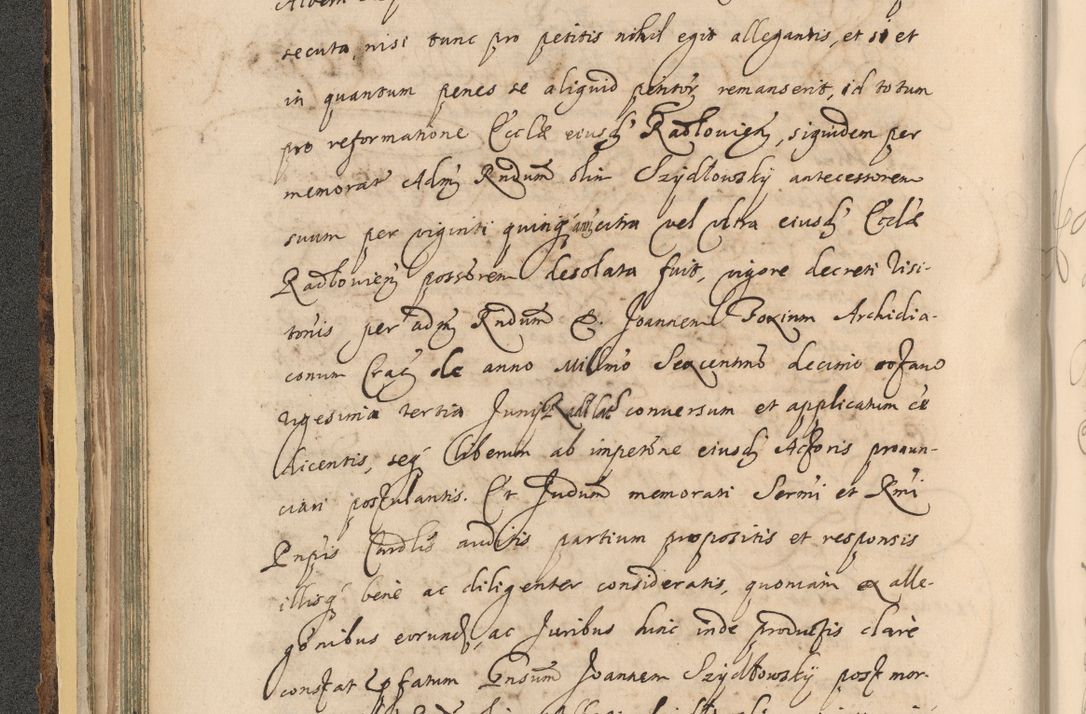 secuta, nisi tunc pro petitis nihil egit allegantis, et si et
in quantum penes se aliquid penitus remanserit, id totum
pro reformatione Eccłæ eiusd Radłovien, siquidem per
memorat Adm Rndum olim Szydłowsky antecessorem
suum per viginti quinq annis citra vel ultra eiusd Eccłæ
Radłovien possorem desolata fuit, vigore decreti Visi-
tonis per adm Rndum D. Joannem Foxium Archidia-
conum Crac de anno Millmo Sexcentmo decimo octavo
vigesima tertia Junij conversum et applicatum ee
dicentis, seq liberum ab impetone eiusd Actoris pronun-
ciari postulantis. Et Judium memorati Sermi et Rmi
Pnpis Cardlis auditis partium propositis et responsis
illisq bene ac diligenter consideratis, quoniam ex alle-
gonibus eorund, ac Juribus hinc inde productis clare
constat pfatum Gnsum Joannem Szydłowsky post mor-